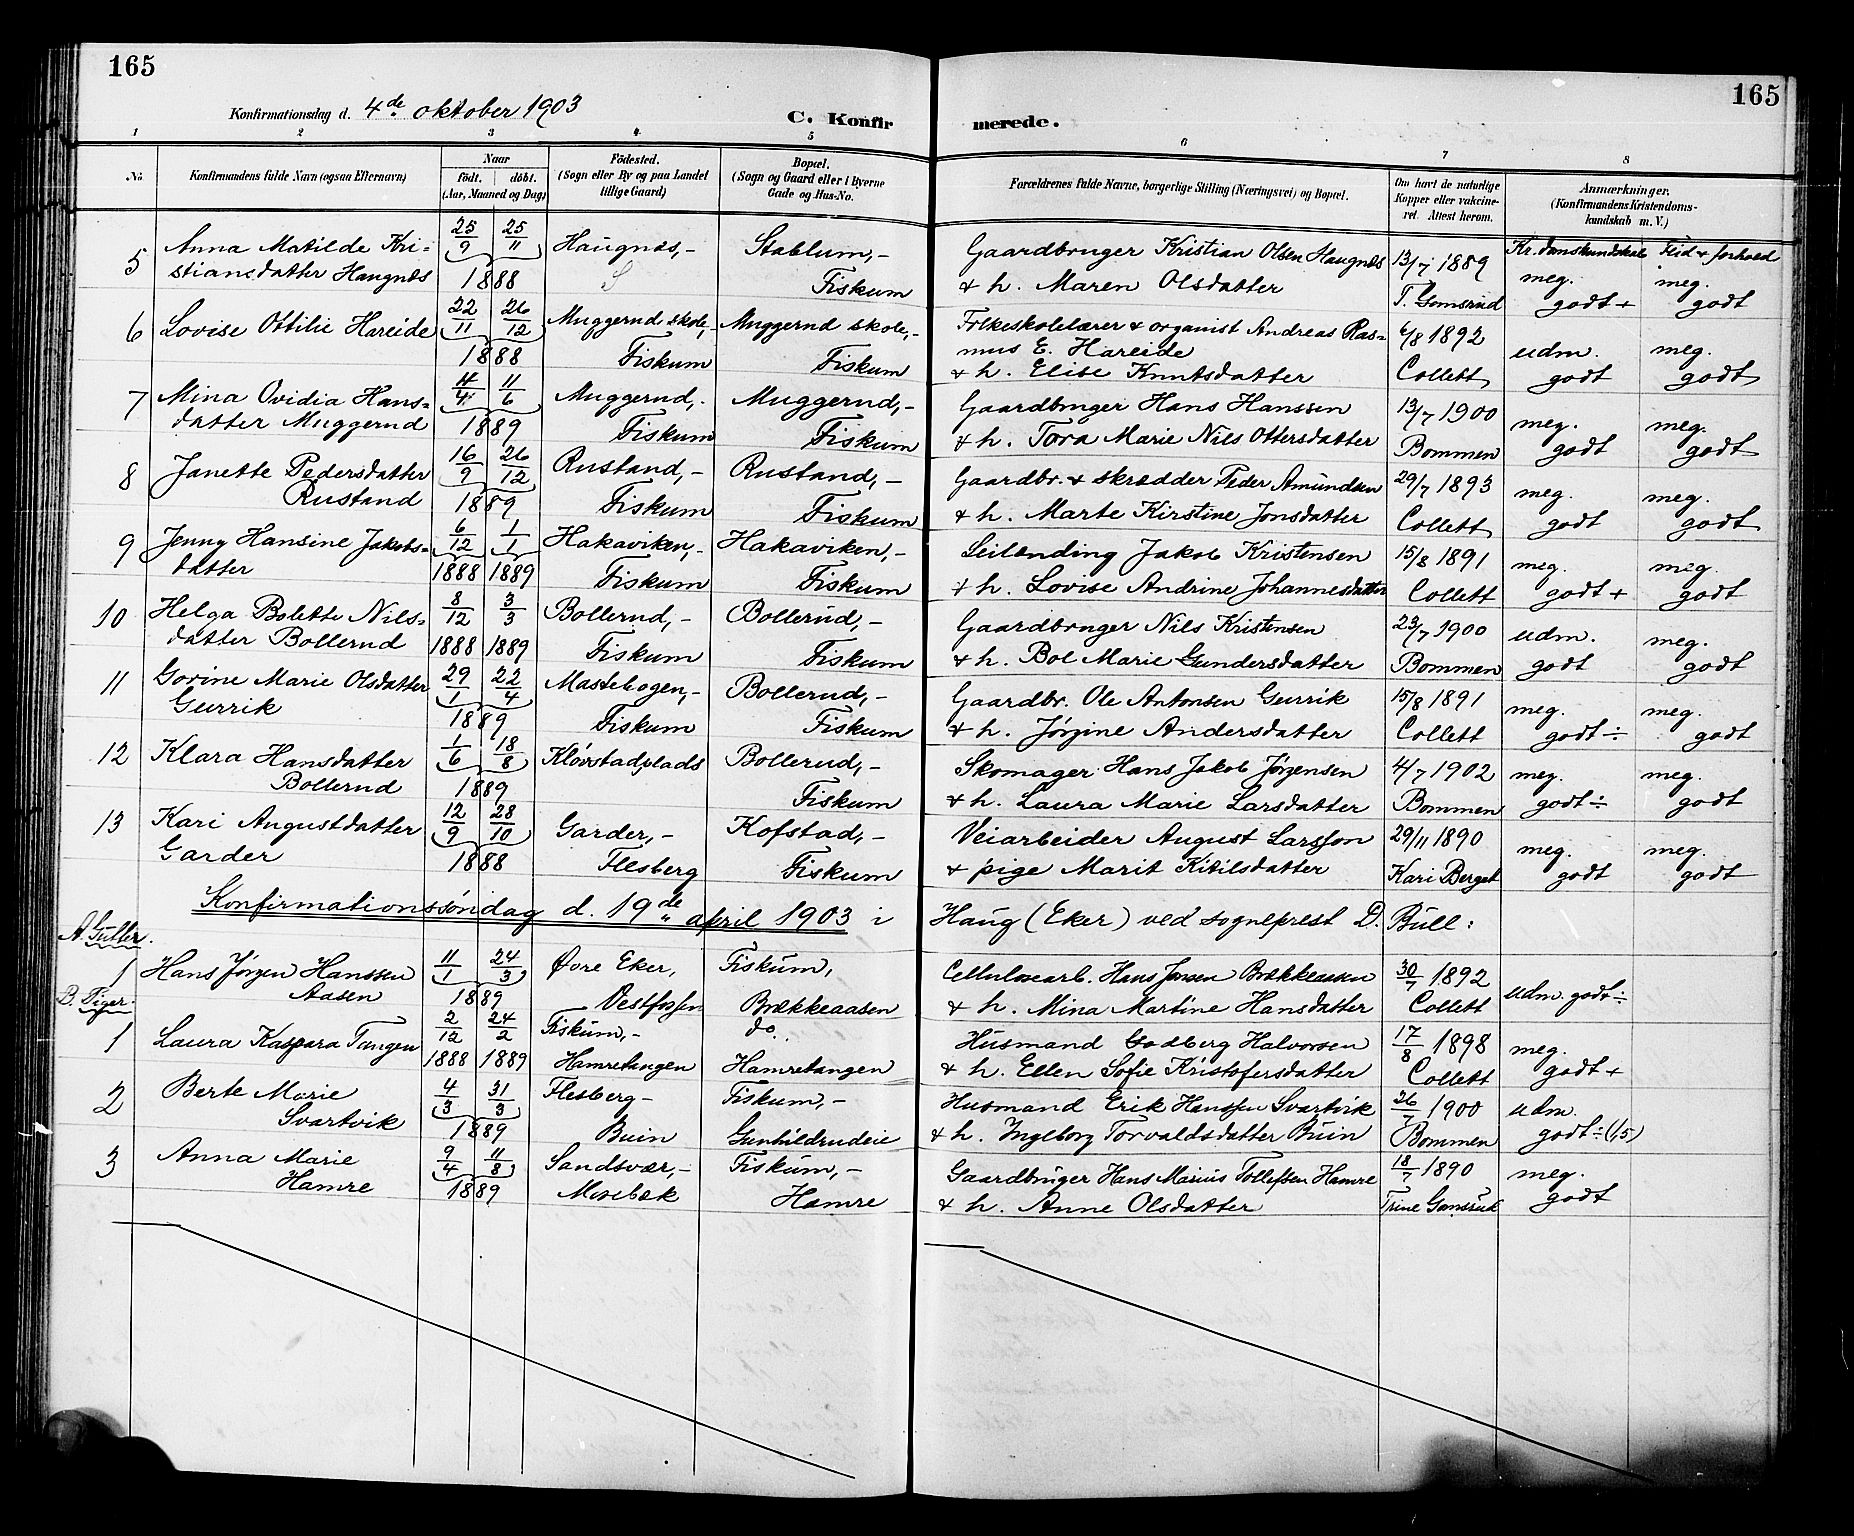 165
165
Konfirmationsdag d. 4de oktober 1903
C. Konfir merede.
1 2 3 4 5 6 7 8
No
Konfirmandens fulde Navn (ogsaa Efternavn)
Naar
födt. döbt.
(Aar, Maaned og Dag)
Födested.
(Sogn eller By og paa Landet
tillige Gaard)
Bopæl.
(Sogn og Gaard eller i Byerne
Gade og Hus-No.
Forældrenes fulde Navne, borgerlige Stilling (Næringsvei) og Bopæl.
Om havt de naturlige
Kopper eller vakcine-
ret. Attest herom.
Anmærkninger.
(Konfirmandens Kristendoms-
kundskab m. V.)
Kr.domskundskab Flid & forhold
5 Anna Matilde Kri- 25/9 25/11 Haugnæs,- Stablum,- Gaardbruger Kristian Olsen Haugnæs 13/7 1889 meg. meg.
stiansdatter Haugnæs 1888 Fiskum & h. Maren Olsdatter T. Gomsrud godt + godt
6 Lovise Ottilie Hareide 22/11 26/12 Muggerud skole,- Muggerud skole,- Folkeskolelærer & organist Andreas Ras- 6/8 1892 udm. meg.
mus E. Hareide
1888 Fiskum Fiskum & h. Elise Knutsdatter Collett godt godt
7 Mina Ovidia Hans- 4/4 11/6 Muggerud,- Muggerud,- Gaardbruger Hans Hanssen 13/7 1900 meg. meg.
datter Muggerud 1889 Fiskum Fiskum & h. Tora Marie Nils Ottersdatter Bommen godt godt
8 Janette Pedersdatter 16/9 26/12 Rustand,- Rustand,- Gaardbr. & skrædder Peder Amundsen 29/7 1893 meg. meg.
Rustand 1889 Fiskum Fiskum & h. Marte Kirstine Jonsdatter Collett godt godt
9 Jenny Hansine Jakobs- 6/12 1/1 Hakaviken,- Hakaviken,- Leilænding Jakob Kristensen 15/8 1891 meg. meg.
datter 1888 1889 Fiskum Fiskum & h. Lovise Andrine Johannesdatter Collett godt + godt
10 Helga Bolette Nils- 8/12 3/3 Bollerud,- Bollerud,- Gaardbruger Nils Kristensen 23/7 1900 udm. meg.
datter Bollerud 1888 1889 Fiskum Fiskum & h. Bol Marie Gundersdatter Bommen godt godt
11 Gorine Marie Olsdatter 29/1 22/4 Mastebogen,- Bollerud,- Gaardbr. Ole Antonsen Gurrik 15/8 1891 meg. meg.
Gurrik 1889 Fiskum Fiskum & h. Jørgine Andersdatter Collett godt ÷ godt
12 Klara Hansdatter 1/6 18/8 Kløvstadplads Bollerud,- Skomager Hans Jakob Jørgensen 4/7 1902 meg. meg.
Bollerud 1889 Fiskum & h. Laura Marie Larsdatter Bommen godt ÷ godt
13 Kari Augustdatter 12/9 28/10 Garder,- Kofstad,- Veiarbeider August Larsson 29/11 1890 meg. meg.
Garder 1888 Flesberg Fiskum & pige Marit Kitilsdatter Kari Berget godt godt
Konfirmationssøndag d. 19de april 1903 i Haug (Eker) ved sogneprest D. Bull:
A. Gutter.
1 Hans Jørgen Hanssen 11/1 24/3 Øvre Eker, Fiskum, Cellulosearb. Hans Jensen Brækkeaasen 30/7 1892 udm. godt ÷
Aasen 1889 Vestfossen Brækkeaasen & h. Mina Martine Hansdatter Collett
B. Piger.
1 Laura Kaspara Tangen 2/12 24/2 Fiskum,- do. Husmand Godberg Halvorsen 17/8 1898 meg.
1888 1889 Hamretangen Hamretangen & h. Ellen Sofie Kristofersdatter Collett godt +
2 Berte Marie 4/3 31/3 Flesberg- Fiskum,- Husmand Erik Hanssen Svartvik 26/7 1900 udm.
Svartvik 1889 Buin Gunhildrudeie & h. Ingeborg Torvaldsdatter Buin Bommen godt ÷ (1,5)
3 Anna Marie 9/4 11/8 Sandsvær,- Fiskum,- Gaardbruger Hans Marius Tollefsen Hamre 18/7 1890 meg.
Hamre 1889 Morebæk Hamre & h. Anne Olsdatter Trine Gamsrud godt